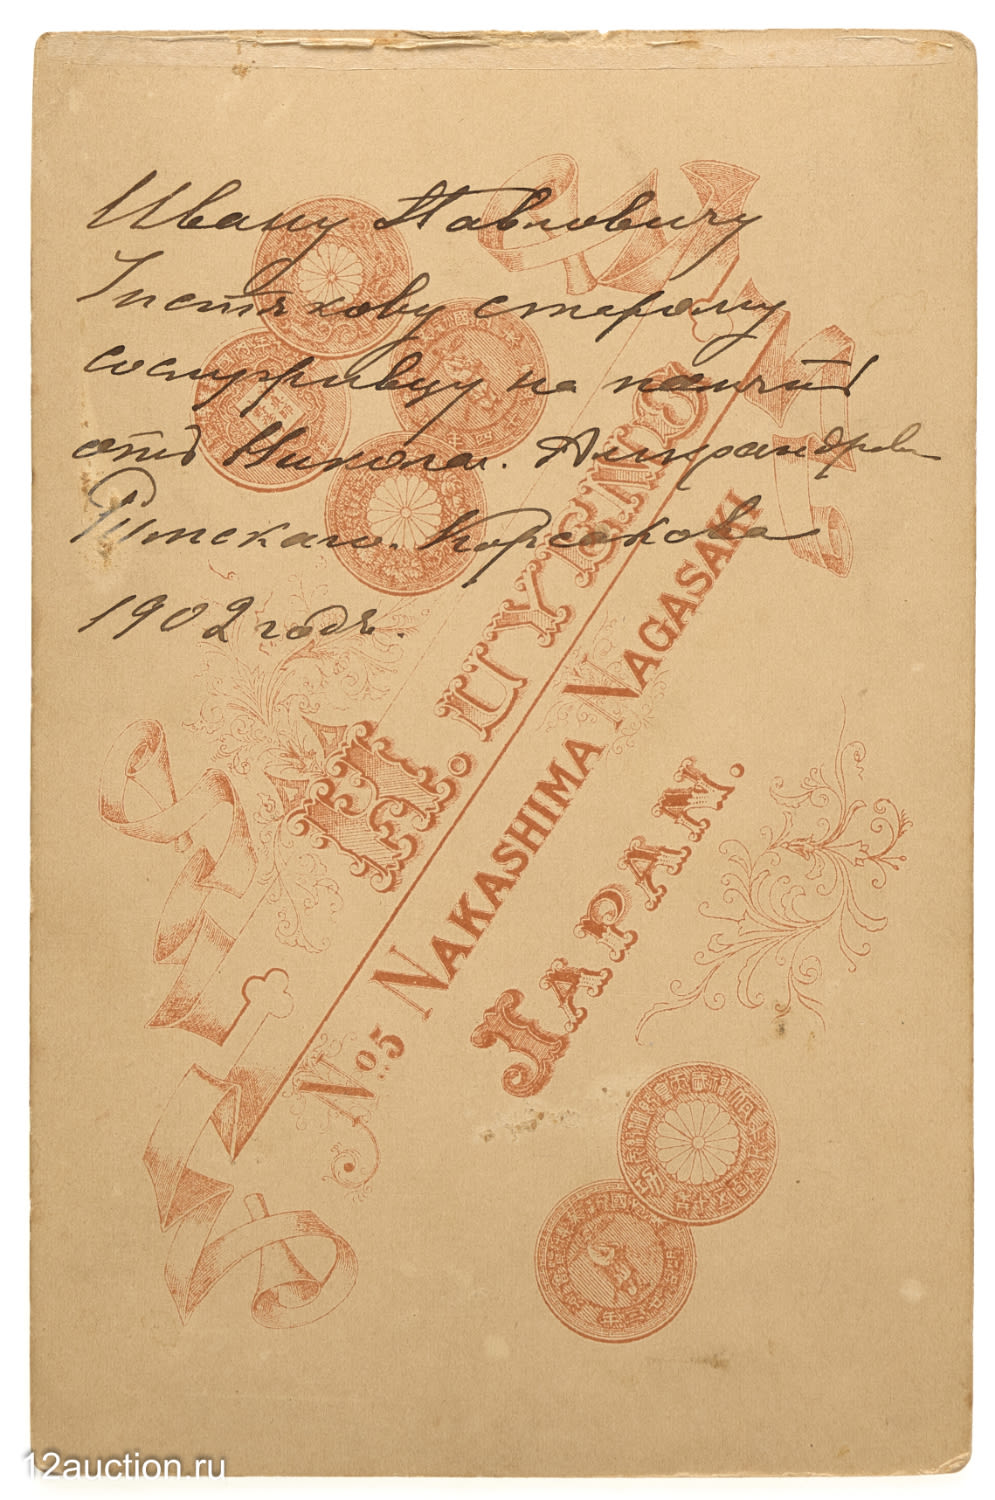 Ивану Павловичу
Чистякову старому
сослуживцу на память
отъ Николая Александров
Римскаго. Корсакова
1902 годъ.
H. UYENO
No. 5 NAKASHIMA NAGASAKI
JAPAN.
12auction.ru